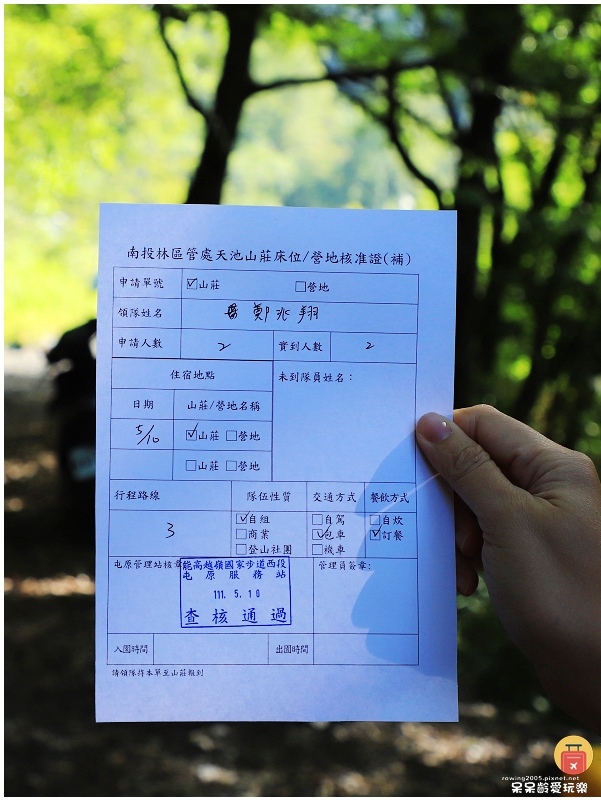 南投林區管處天池山莊床位/營地核准證(補)
申請單號 ☑山莊 □營地
領隊姓名 鄭兆翔
申請人數 2 實到人數 2
住宿地點 未到隊員姓名：
日期 山莊/營地名稱
5/10 ☑山莊 □營地
□山莊 □營地
行程路線 隊伍性質 交通方式 餐飲方式
3 ☑自組 □自駕 □自炊
□商業 ☑包車 ☑訂餐
□登山社團 □機車
屯原管理站核章 管理員簽章:
能高越嶺國家步道西段
屯原服務站
111. 5. 10
查核通過
入園時間 出園時間
請領隊持本單至山莊報到
rowing2005.pixnet.net
呆呆齡愛玩樂